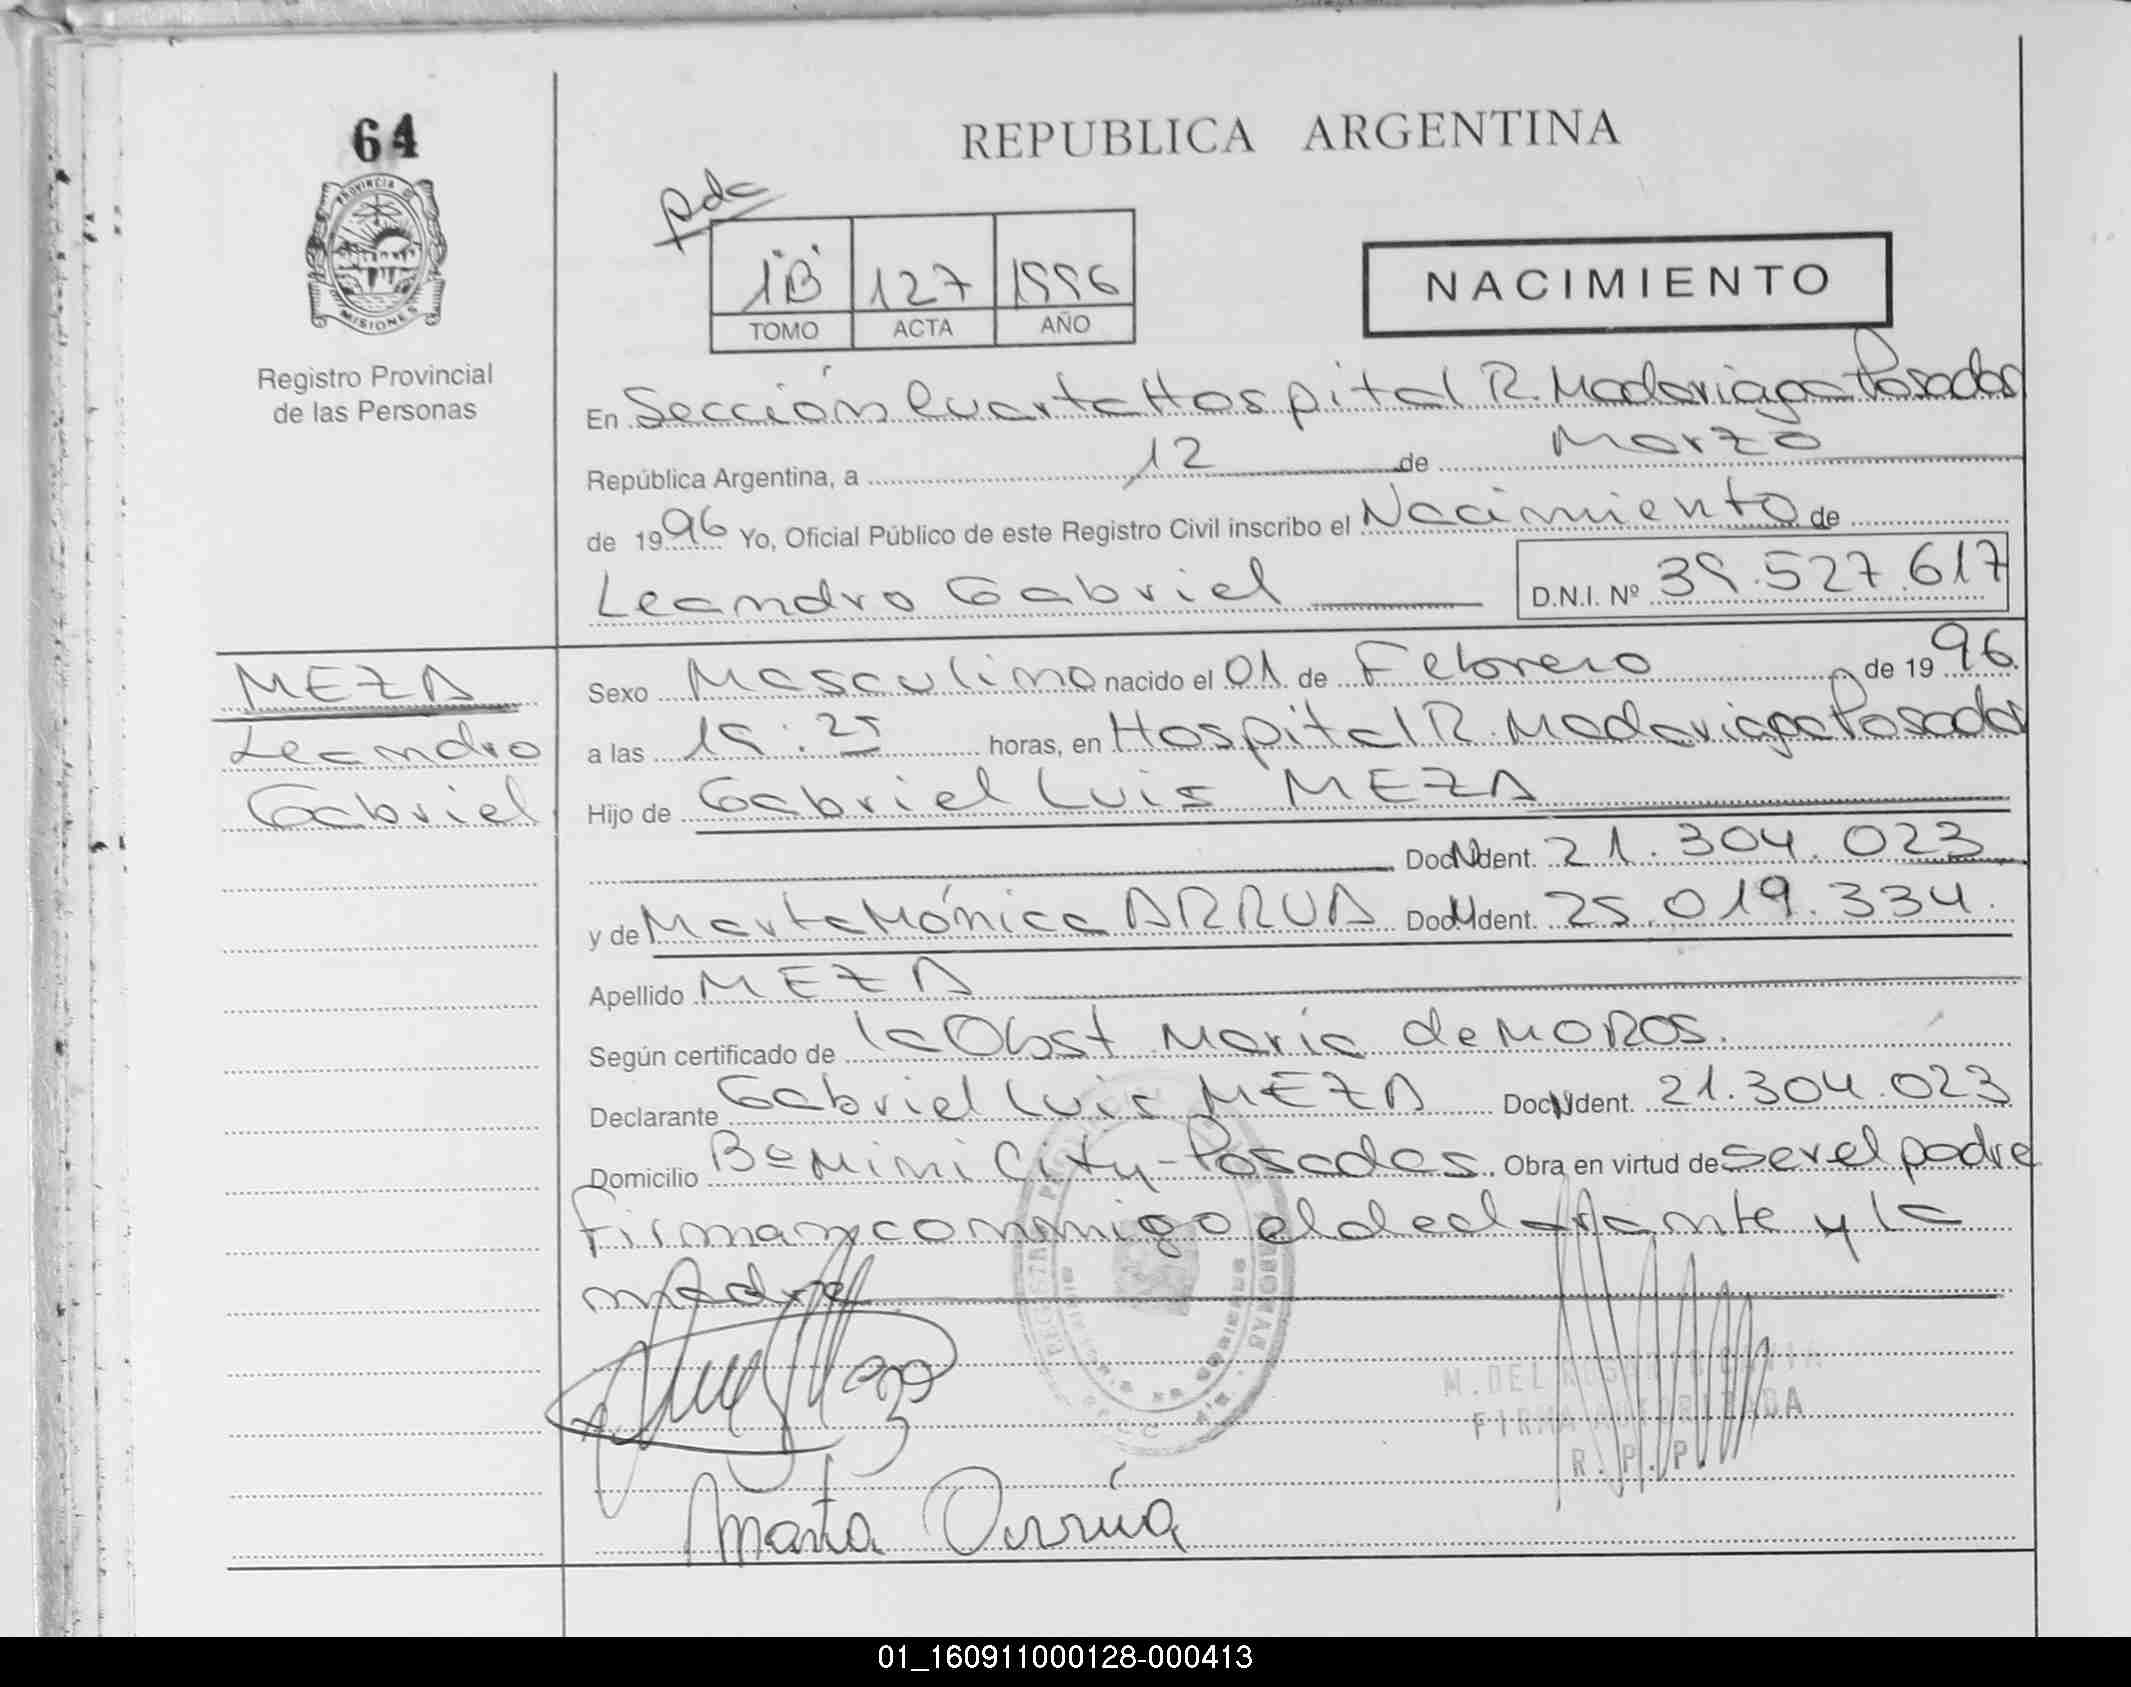 64
PROVINCIA DE
MISIONES
Registro Provincial
de las Personas
REPUBLICA ARGENTINA
pdc
1"B" 127 1996
TOMO ACTA AÑO
NACIMIENTO
En Sección Cuarta Hospital R. Madariaga Posadas
República Argentina, a 12 de Marzo
de 1996 Yo, Oficial Público de este Registro Civil inscribo el Nacimiento de
Leandro Gabriel D.N.I. Nº 39.527.617
MEZA
Leandro
Gabriel
Sexo Masculino nacido el 01 de Febrero de 1996.
a las horas, en Hospital R. Madariaga Posadas
Hijo de Gabriel Luis MEZA
Doc. Ident. 21.304.023
y de Marta Mónica ARRUA Doc. Ident. 25.019.334.
Apellido MEZA
Según certificado de la Obst María de MOROS.
Declarante Gabriel Luis MEZA Doc. Ident. 21.304.023
Domicilio Bº Mini City-Posadas. Obra en virtud de ser el padre
Firman conmigo el declarante y la
madre
M. DEL
FIRMA AUTORIZADA
R. P. P.
Marta Arrúa
01_160911000128-000413